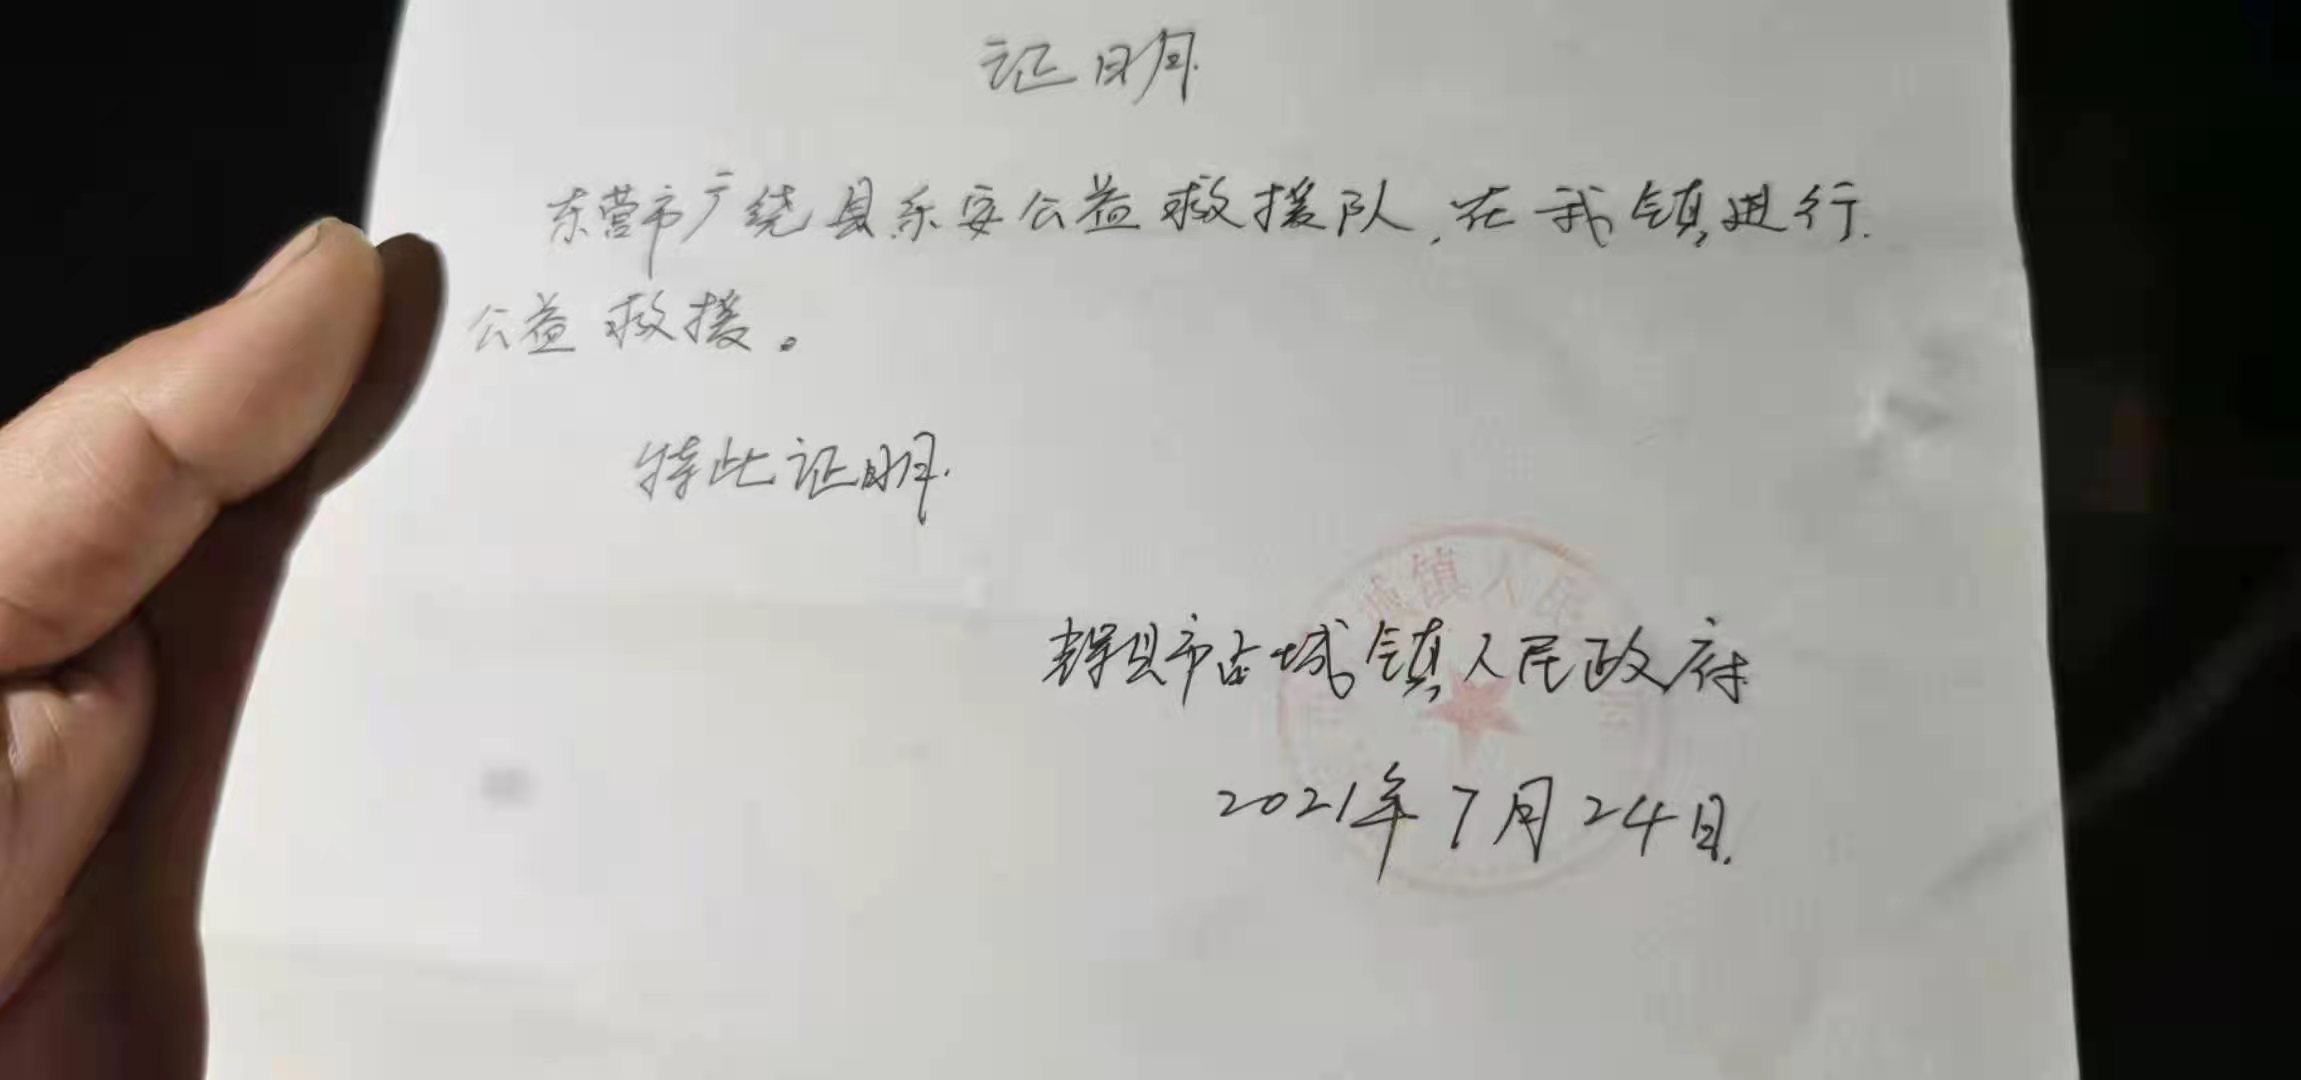 证明
东营市广饶县乐安公益救援队，在我镇进行
公益救援。
特此证明.
城镇人民
辉县市占城镇人民政府
2021年7月24日